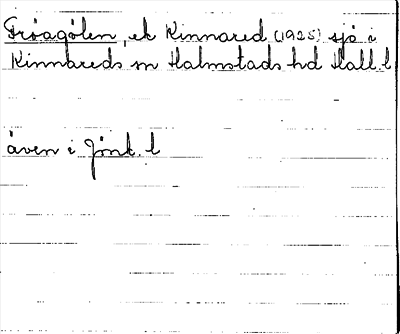 Fröagölen, ek Kinnared (1925) sjö i
Kinnareds sn Halmstads hd Hall. l
även i Jönk. l